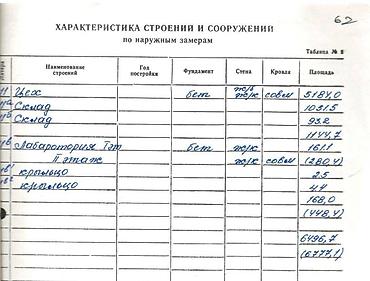 62
ХАРАКТЕРИСТИКА СТРОЕНИЙ И СООРУЖЕНИЙ
по наружным замерам
Таблица № 8
Литера Наименование строений Год постройки Фундамент Стена Кровля Площадь
11 Цех бет ж/б ж/к совм 5184,0
Склад 1031.5
Склад 93.2
1144,7
11в Лаборатория I эт бет ж/к 161.1
II этаж ж/к совм (280,4)
крыльцо 2.5
крыльцо 4.4
168,0
(448,4)
6496,7
(6777,1)